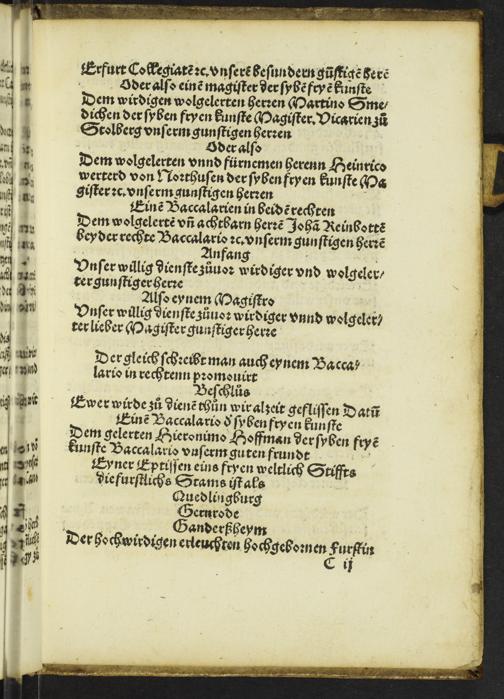 Erfurt Collegiatē ꝛc. vnserē besundern gūstigē herē
Oder also einē magister der sybē fryē kunste
Dem wirdigen wolgelerten herren Martino Sme⸗
dichen der syben fryen kunste Magister. Vicarien zů
Stolberg vnserm gunstigen herren
Oder also
Dem wolgelerten vnnd fürnemen herenn Heinrico
werterd von Notthusen der syben fryen kunste Ma
gister ꝛc. vnserm gunstigen herren
Einē Baccalarien in beidē rechten
Dem wolgelertē vn̄ achtbarn herrē Johā Reinbottē
bey der rechte Baccalario ꝛc. vnserm gunstigen herrē
Anfang
Vnser willig dienste zůuor wirdiger vnd wolgeler⸗
ter gunstiger herre
Also eynem Magistro
Vnser willig dienste zůuor wirdiger vnnd wolgeler⸗
ter lieber Magister gunstiger herre
Der gleich schreibt man auch eynem Bacca⸗
lario in rechtenn promouirt
Beschlüs
Ewer wirde zů dienē thůn wir alzeit geflissen Datū
Einē Baccalario d̄ syben fryen kunste
Dem gelerten Hieronimo Hoffman der syben fryē
kunste Baccalario vnserm guten frundt
Eyner Eptissen eins fryen weltlich Stiffts
die furstlichs Stams ist als
Quedlingburg
Gernrode
Ganderßheym
Der hochwirdigen erleuchten hochgebornen Furstin
C ij